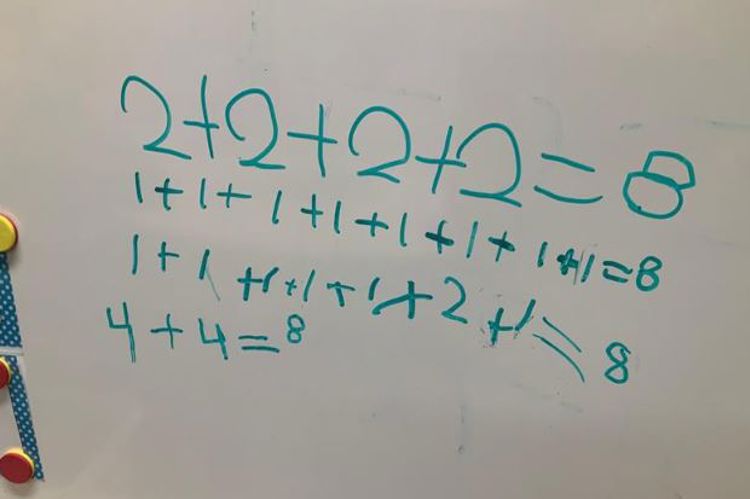 2+2+2+2=8
1+1+1+1+1+1+1+1=8
1+1+1+1+1+2+1=8
4+4=8